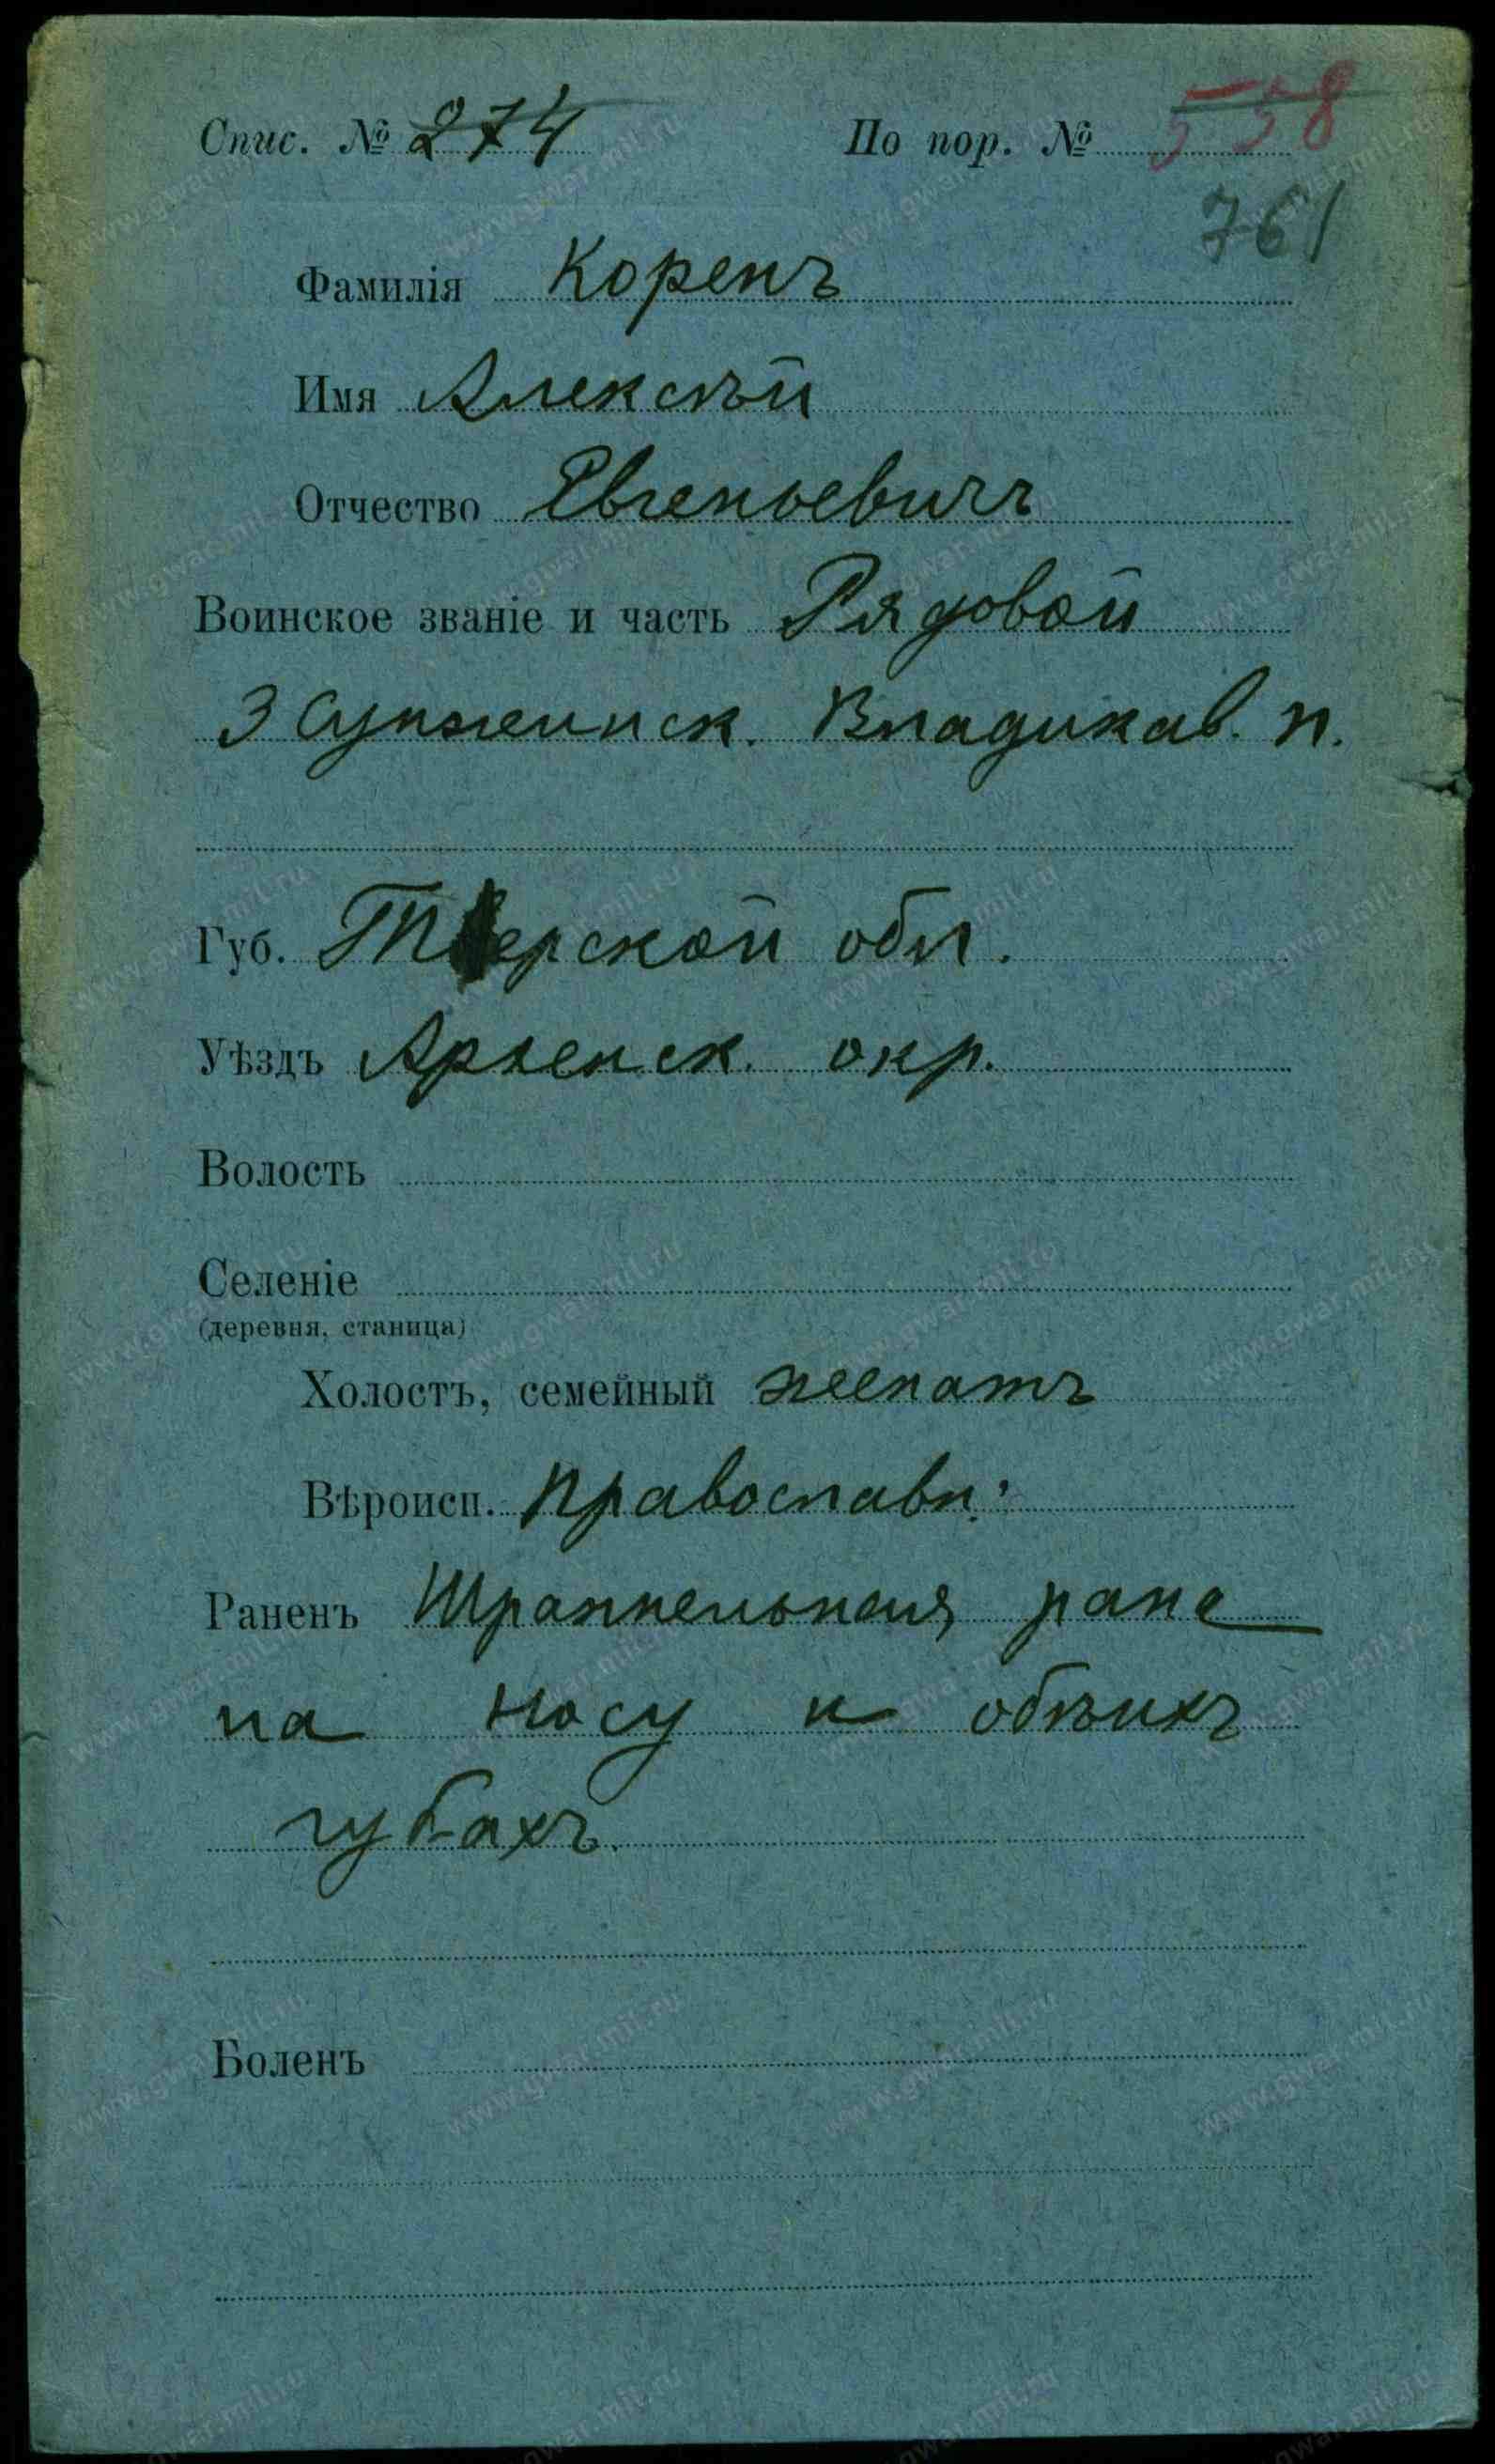 Спис. № 274 По пор. № 558
761
Фамилія Коренъ
Имя Алексѣй
Отчество Евгеньевичъ
Воинское званіе и часть Рядовой
3 Сунженск. Владикав. п.
Губ. Терской обл.
Уѣздъ окр.
Волость
Селеніе
(деревня, станица)
Холостъ, семейный женатъ
Вѣроисп. Православн.
Раненъ Шрапнельная рана
на носу и обѣихъ
губахъ.
Боленъ
www.gwar.mil.ru